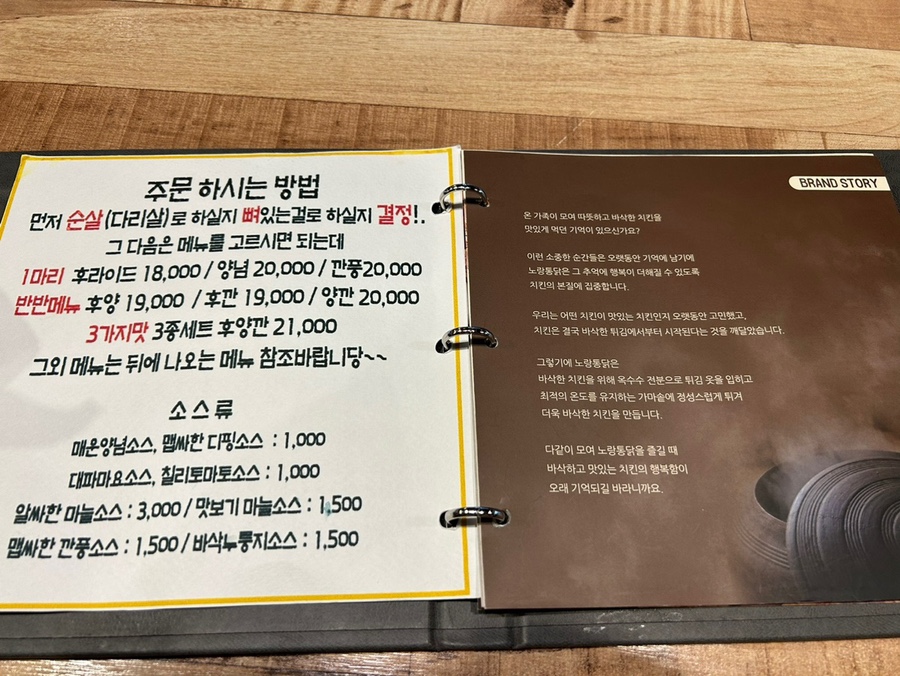 주문 하시는 방법
먼저 순살(다리살)로 하실지 뼈있는걸로 하실지 결정!.
그 다음은 메뉴를 고르시면 되는데
1마리 후라이드 18,000 / 양념 20,000 / 깐풍20,000
반반메뉴 후양 19,000 / 후깐 19,000 / 양깐 20,000
3가지맛 3종세트 후양깐 21,000
그외 메뉴는 뒤에 나오는 메뉴 참조바랍니당~~
소스류
매운양념소스, 맵싸한 디핑소스 : 1,000
대파마요소스, 칠리토마토소스 : 1,000
알싸한 마늘소스 : 3,000 / 맛보기 마늘소스 : 1,500
맵싸한 깐풍소스 : 1,500 / 바삭누룽지소스 : 1,500
BRAND STORY
온 가족이 모여 따뜻하고 바삭한 치킨을
맛있게 먹던 기억이 있으신가요?
이런 소중한 순간들은 오랫동안 기억에 남기에
노랑통닭은 그 추억에 행복이 더해질 수 있도록
치킨의 본질에 집중합니다.
우리는 어떤 치킨이 맛있는 치킨인지 오랫동안 고민했고,
치킨은 결국 바삭한 튀김에서부터 시작된다는 것을 깨달았습니다.
그렇기에 노랑통닭은
바삭한 치킨을 위해 옥수수 전분으로 튀김 옷을 입히고
최적의 온도를 유지하는 가마솥에 정성스럽게 튀겨
더욱 바삭한 치킨을 만듭니다.
다같이 모여 노랑통닭을 즐길 때
바삭하고 맛있는 치킨의 행복함이
오래 기억되길 바라니까요.